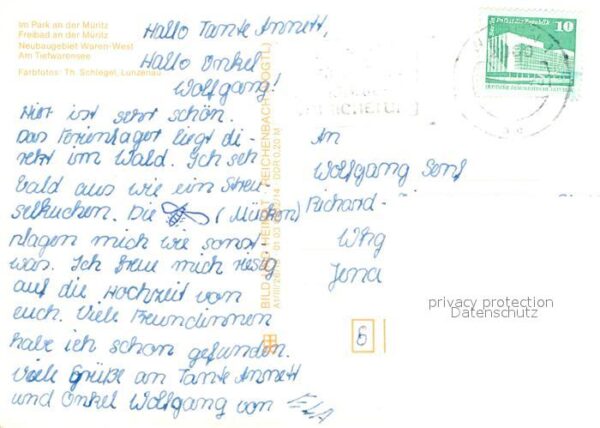 Im Park an der Müritz
Freibad an der Müritz
Neubaugebiet Waren-West
Am Tiefwarensee
Farbfotos: Th. Schlegel, Lunzenau
Hallo Tante Annett,
Hallo Onkel
Wolfgang!
Hier ist sehr schön.
Das Ferienlager liegt di-
rekt im Wald. Ich seh
bald aus wie ein Streu-
selkuchen. Die (Mücken)
plagen mich wie sonst
was. Ich freue mich riesig
auf die Hochzeit von
euch. Viele Freundinnen
habe ich schon gefunden.
Viele Grüße an Tante Annett
und Onkel Wolfgang von ELA
BILD UND HEIMAT REICHENBACH (VOGTL)
DDR 0,20 M
10
An
Wolfgang
Richard-
Jena
6
privacy protection
Datenschutz